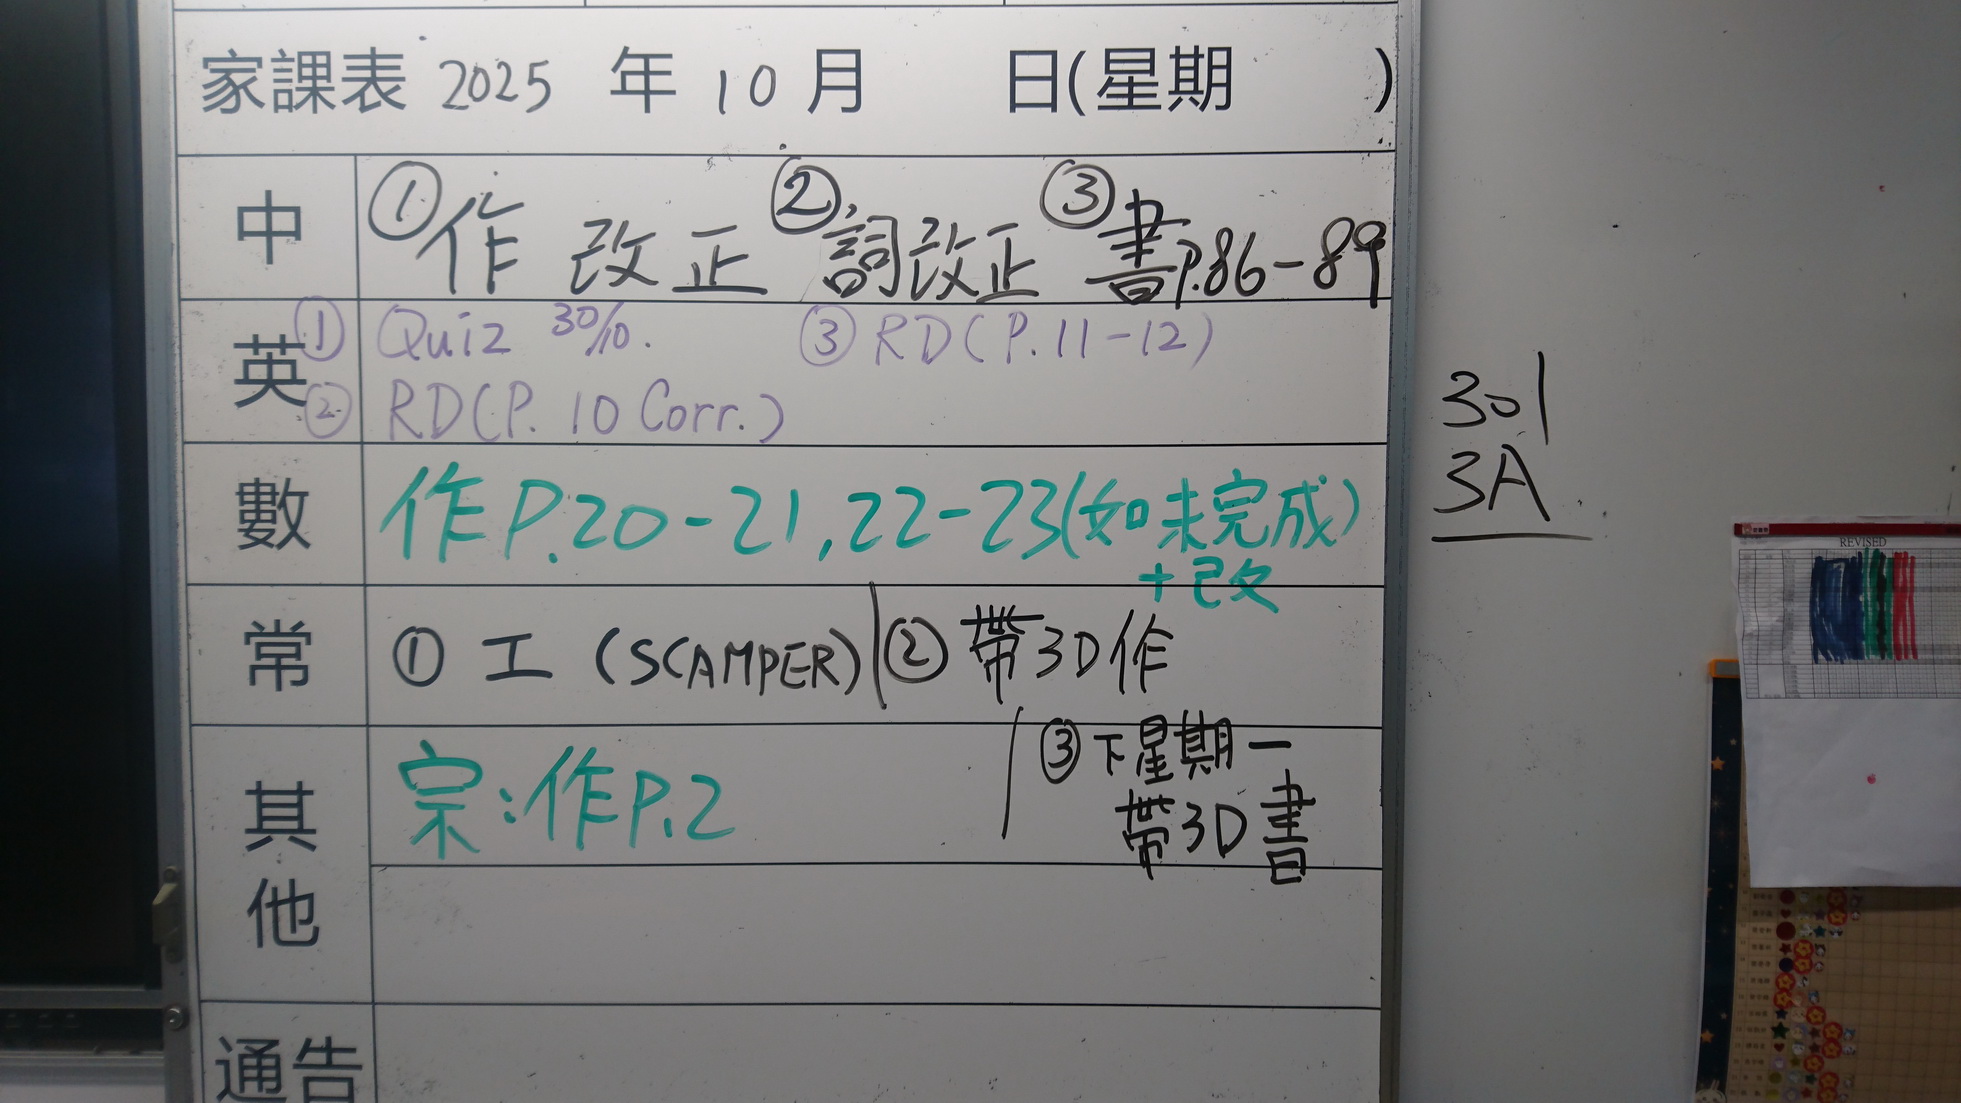 家課表 2025 年 10 月 日(星期 )
中 ①作 改正 ②詞改正 ③書P.86-89
英 ① Quiz 30/10. ③ RD(P.11-12)
② RD(P. 10 Corr.)
數 作P.20-21,22-23(如未完成)
+改
常 ① 工 (SCAMPER) ② 帶3D作
其他 宗:作P.2 ③ 下星期一
帶3D書
通告
301
3A
REVISED